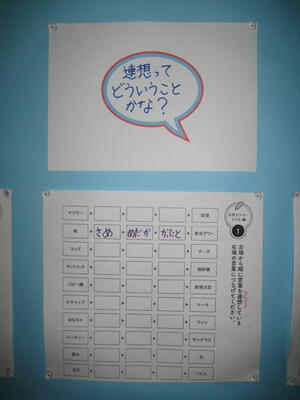 連想って
どういうこと
かな?
1
左端から順に言葉を連想していき、
右端の言葉につなげてください。
マフラー 砂漠
さめ めだか かぶと 東京タワー
コップ チーズ
サンドイッチ
コピー機 総理大臣
ケチャップ ケーキ
おもちゃ ワイン
パーティー サングラス
パズル